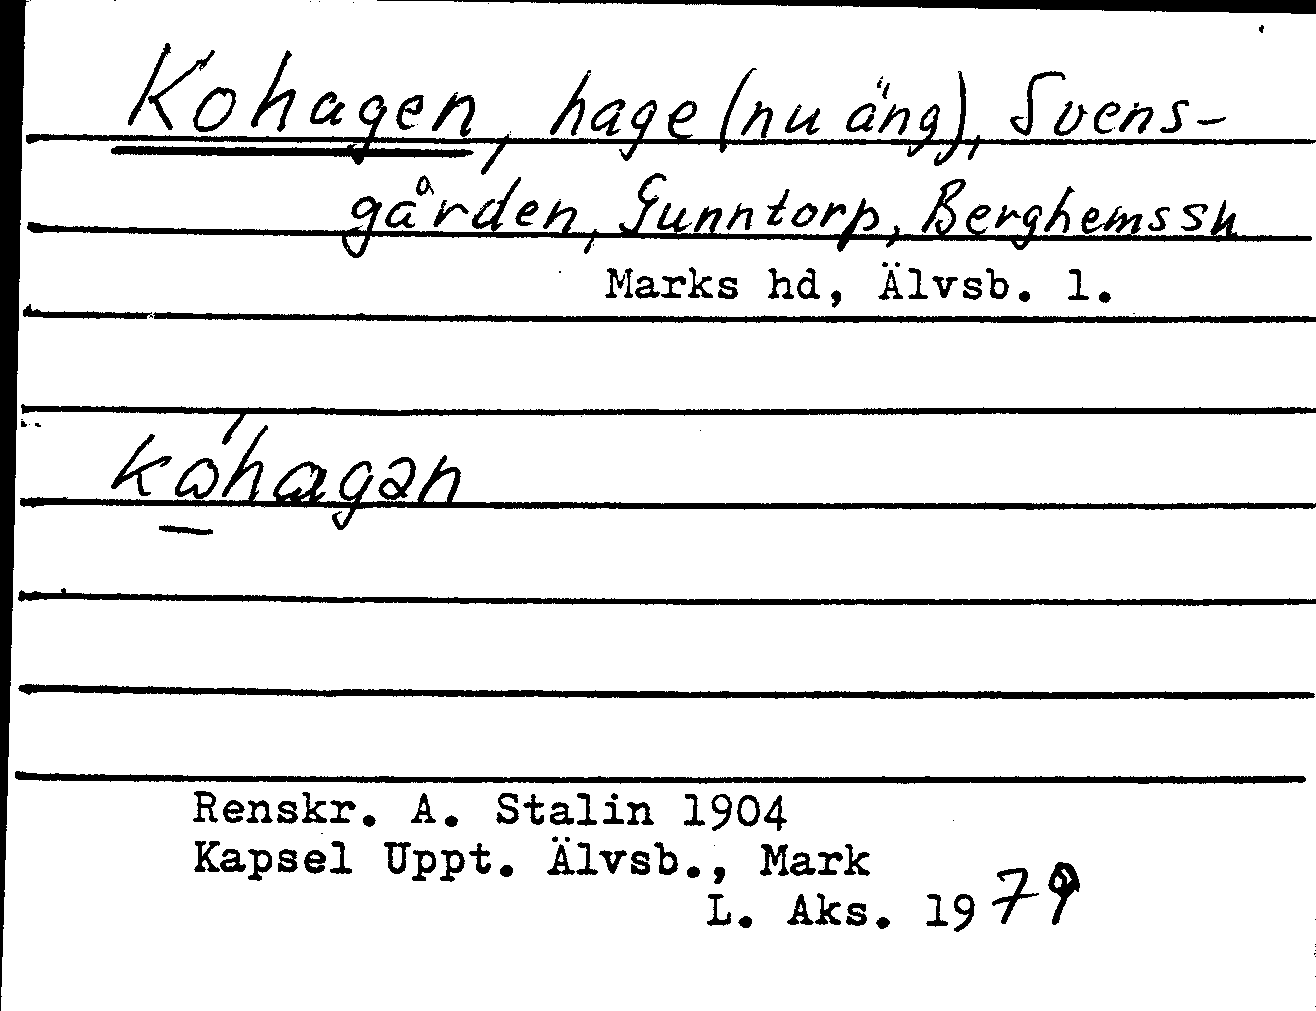 Kohagen, hage (nu äng), Svens-
gården, Gunntorp, Berghemssn
Marks hd, Älvsb. l.
Renskr. A. Stalin 1904
Kapsel Uppt. Älvsb., Mark
L. Aks. 1979